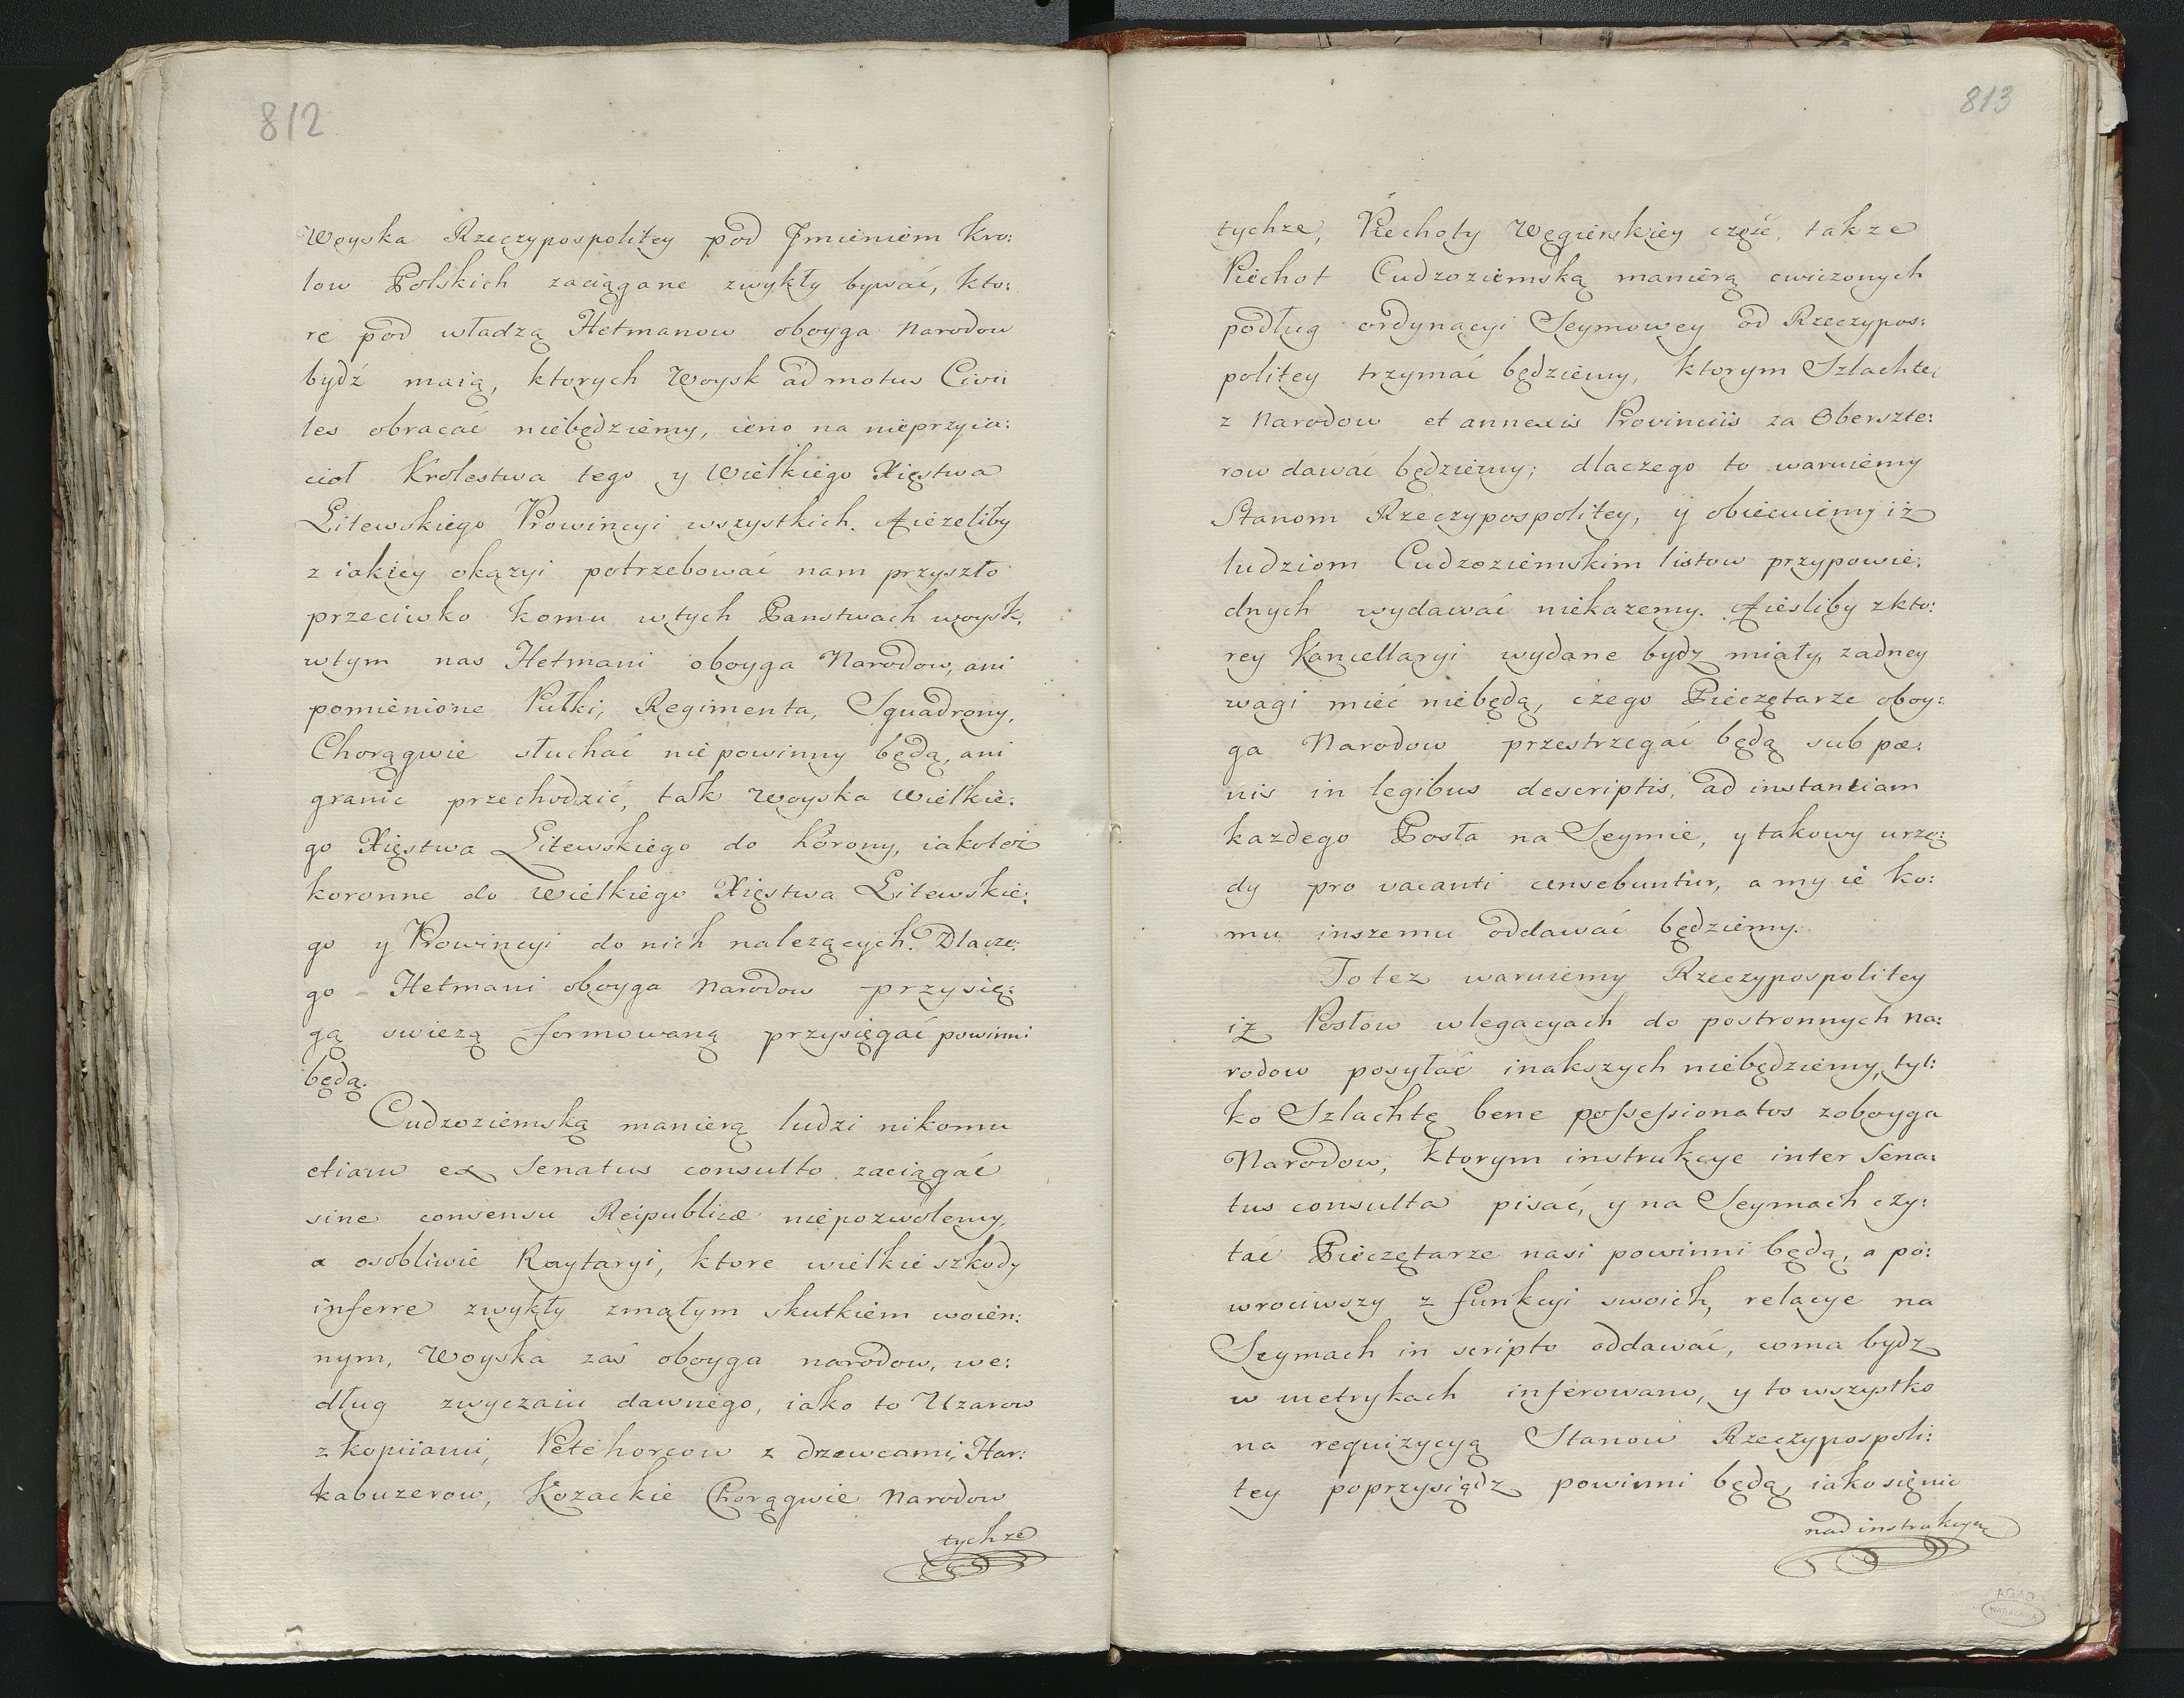 812
Woyska Rzeczypospolitey pod Jmieniem Kro:
low Polskich zaciągane zwykły bywać, kto:
re pod władzą Hetmanow oboyga Narodow
bydź maią, ktorych Woysk ad motus Civi
les obracać niebędziemy, ieno na nieprzyia:
cioł Krolestwa tego y Wielkiego Xięstwa
Litewskiego Prowincyi wszystkich. Aieżeliby
z iakiey okazyi potrzebować nam przyszło
przeciwko komu w tych Panstwach woysk,
wtym nas Hetmani oboyga Narodow, ani
pomienione Pułki, Regimenta, Squadrony,
Chorągwie słuchać niepowinny będą, ani
granic przechodzić, tak Woyska Wielkie:
go Xięstwa Litewskiego do Korony, iakoteż
koronne do Wielkiego Xięstwa Litewskie:
go y Prowincyi do nich należących. Dlacze:
go Hetmani oboyga Narodow przysię:
gą swieżą formowaną przysięgać powinni
będą.
Cudzoziemską manierą ludzi nikomu
etiam ex Senatus consulto zaciągać
sine consensu Reipublicæ niepozwolemy,
a osobliwie Raytaryi, ktore wielkie szkody
inferre zwykły zmałym skutkiem woien:
nym, Woyska zaś oboyga narodow, we:
dług zwyczaiu dawnego, iako to Uzarow
z kopiiami, Petehorcow z drzewcami, Har:
kabuzerow, Kozackie Chorągwie Narodow
tychże
813
tychże, Piechoty Węgierskiey część, takze
Piechot Cudzoziemską manierą cwiczonych
podług ordynacyi Seymowey od Rzeczypos:
politey trzymać będziemy, ktorym Szlachtę
z Narodow et annexis Provinciis za Oberszte:
row dawać będziemy; dlaczego to waruiemy
Stanom Rzeczypospolitey, y obiecuiemy iż
ludziom Cudzoziemskim listow przypowie:
dnych wydawać niekazemy. Aiesliby zkto:
rey Kancellaryi wydane bydz miały, zadney
wagi mieć niebędą, czego Pieczętarze oboy:
ga Narodow przestrzegać będą sub pæ:
nis in legibus descriptis, ad instantiam
kazdego Posła na Seymie, y takowy urzę:
dy pro vacanti censebuntur, a my ie ko:
mu inszemu oddawać będziemy.
To tez waruiemy Rzeczypospolitey
iż Posłow wlegacyach do postronnych Na:
rodow posyłać inakszych niebędziemy, tyl:
ko Szlachtę bene possessionatos zoboyga
Narodow, ktorym instrukcye inter Sena:
tus consulta pisać, y na Seymach czy:
tać Pieczętarze nasi powinni będą, a po:
wrociwszy z funkcyi swoich, relacye na
Seymach in scripto oddawać, coma bydz
w metrykach inferowano, y to wszystko
na requizycyą Stanow Rzeczypospoli:
tey poprzysiądz powinni będą, iako się nic
nad instrukcyą
AGAD
WARSZAWA